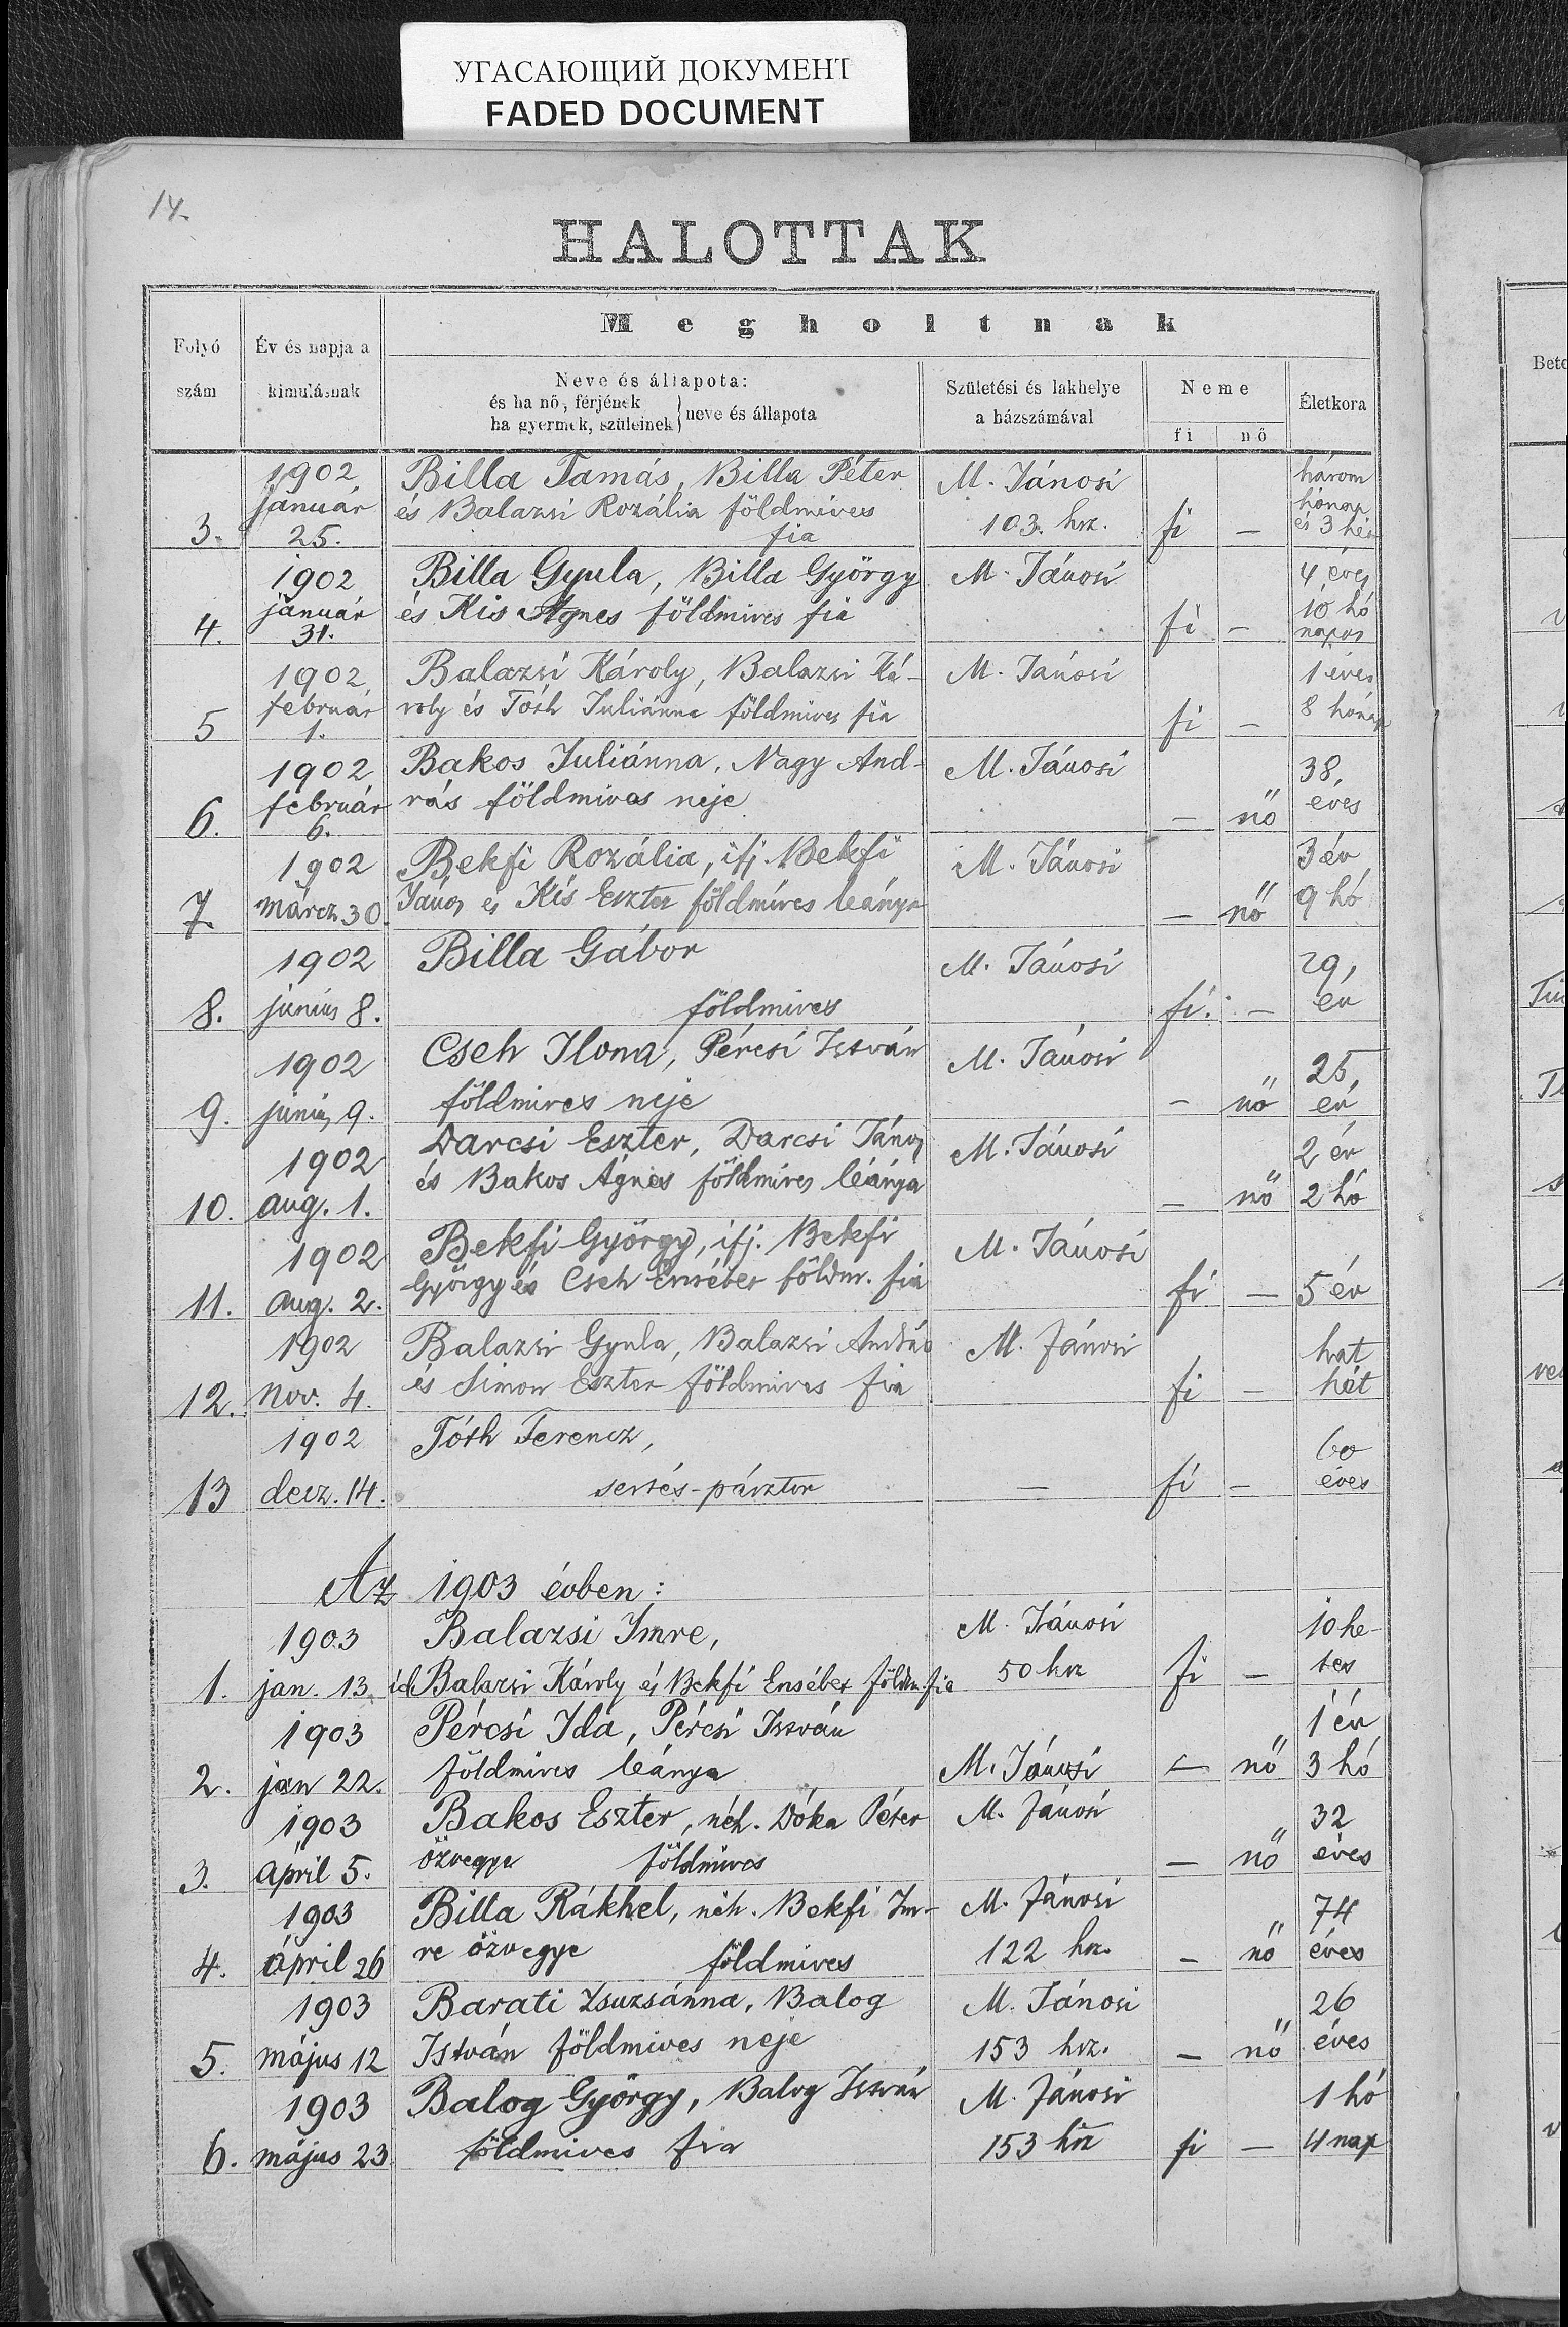 УГАСАЮЩИЙ ДОКУМЕНТ
FADED DOCUMENT
14.
HALOTTAK
Megholtnak
Folyó szám
Év és napja a kimulásnak
Neve és állapota:
és ha nő, férjének
ha gyermek, szüleinek } neve és állapota
Születési és lakhelye
a házszámával
Neme
fi nő
Életkora
1902 Billa Tamás, Billa Péter M. Jánosi három
január és Balazsi Rozália földmives 103. hsz. hónap
3. 25. fia fi — és 3 hét
1902 Billa Gyula, Billa György M. Jánosi 4 éves
január és Kis Ágnes földmives fia 10 hó
4. 31. fi — napos
1902 Balazsi Károly, Balazsi Ká- M. Jánosi 1 éves
február roly és Tóth Juliánna földmives fia 8 hónap
5 1. fi —
1902 Bakos Juliánna, Nagy And- M. Jánosi 38,
február rás földmives neje éves
6. 6. — nő
1902 Bekfi Rozália, ifj. Bekfi M. Jánosi 3 év
7. márcz 30. János és Kis Eszter földmíves leánya — nő 9 hó
1902 Billa Gábor M. Jánosi 29,
8. június 8. földmives fi. — év
1902 Cseh Ilona, Pércsi István M. Jánosi 25,
9. június 9. földmives neje — nő év
1902 Darcsi Eszter, Darcsi János M. Jánosi 2 év
10. aug. 1. és Bakos Ágnes földmíves leánya — nő 2 hó
1902 Bekfi György, ifj. Bekfi M. Jánosi
11. aug. 2. György és Cseh Ersébet földm. fia fi — 5 év
1902 Balazsi Gyula, Balazsi András M. Jánosi hat
12. nov. 4. és Simon Eszter földmives fia fi — hét
1902 Tóth Ferencz, 60
13 decz. 14. sertés-pásztor — fi — éves
Az 1903 évben:
1903 Balazsi Imre, M. Jánosi 10 he-
1. jan. 13. id Balazsi Károly és Bekfi Ersébet földm. fia 50 hsz fi — tes
1903 Pércsi Ida, Pércsi István 1 év
2. jan 22. földmives leánya M. Jánosi — nő 3 hó
1903 Bakos Eszter, néh. Dóka Péter M. Jánosi 32
3. április 5. özvegye földmives — nő éves
1903 Billa Rákhel, néh. Bekfi Im- M. Jánosi 74
4. ápril 26 re özvegye földmives 122 hsz. — nő éves
1903 Barati Zsuzsánna, Balog M. Jánosi 26
5. május 12 István földmives neje 153 hsz. — nő éves
1903 Balog György, Balog István M. Jánosi 1 hó
6. május 23. földmives fia 153 hsz fi — 4 nap
Bete